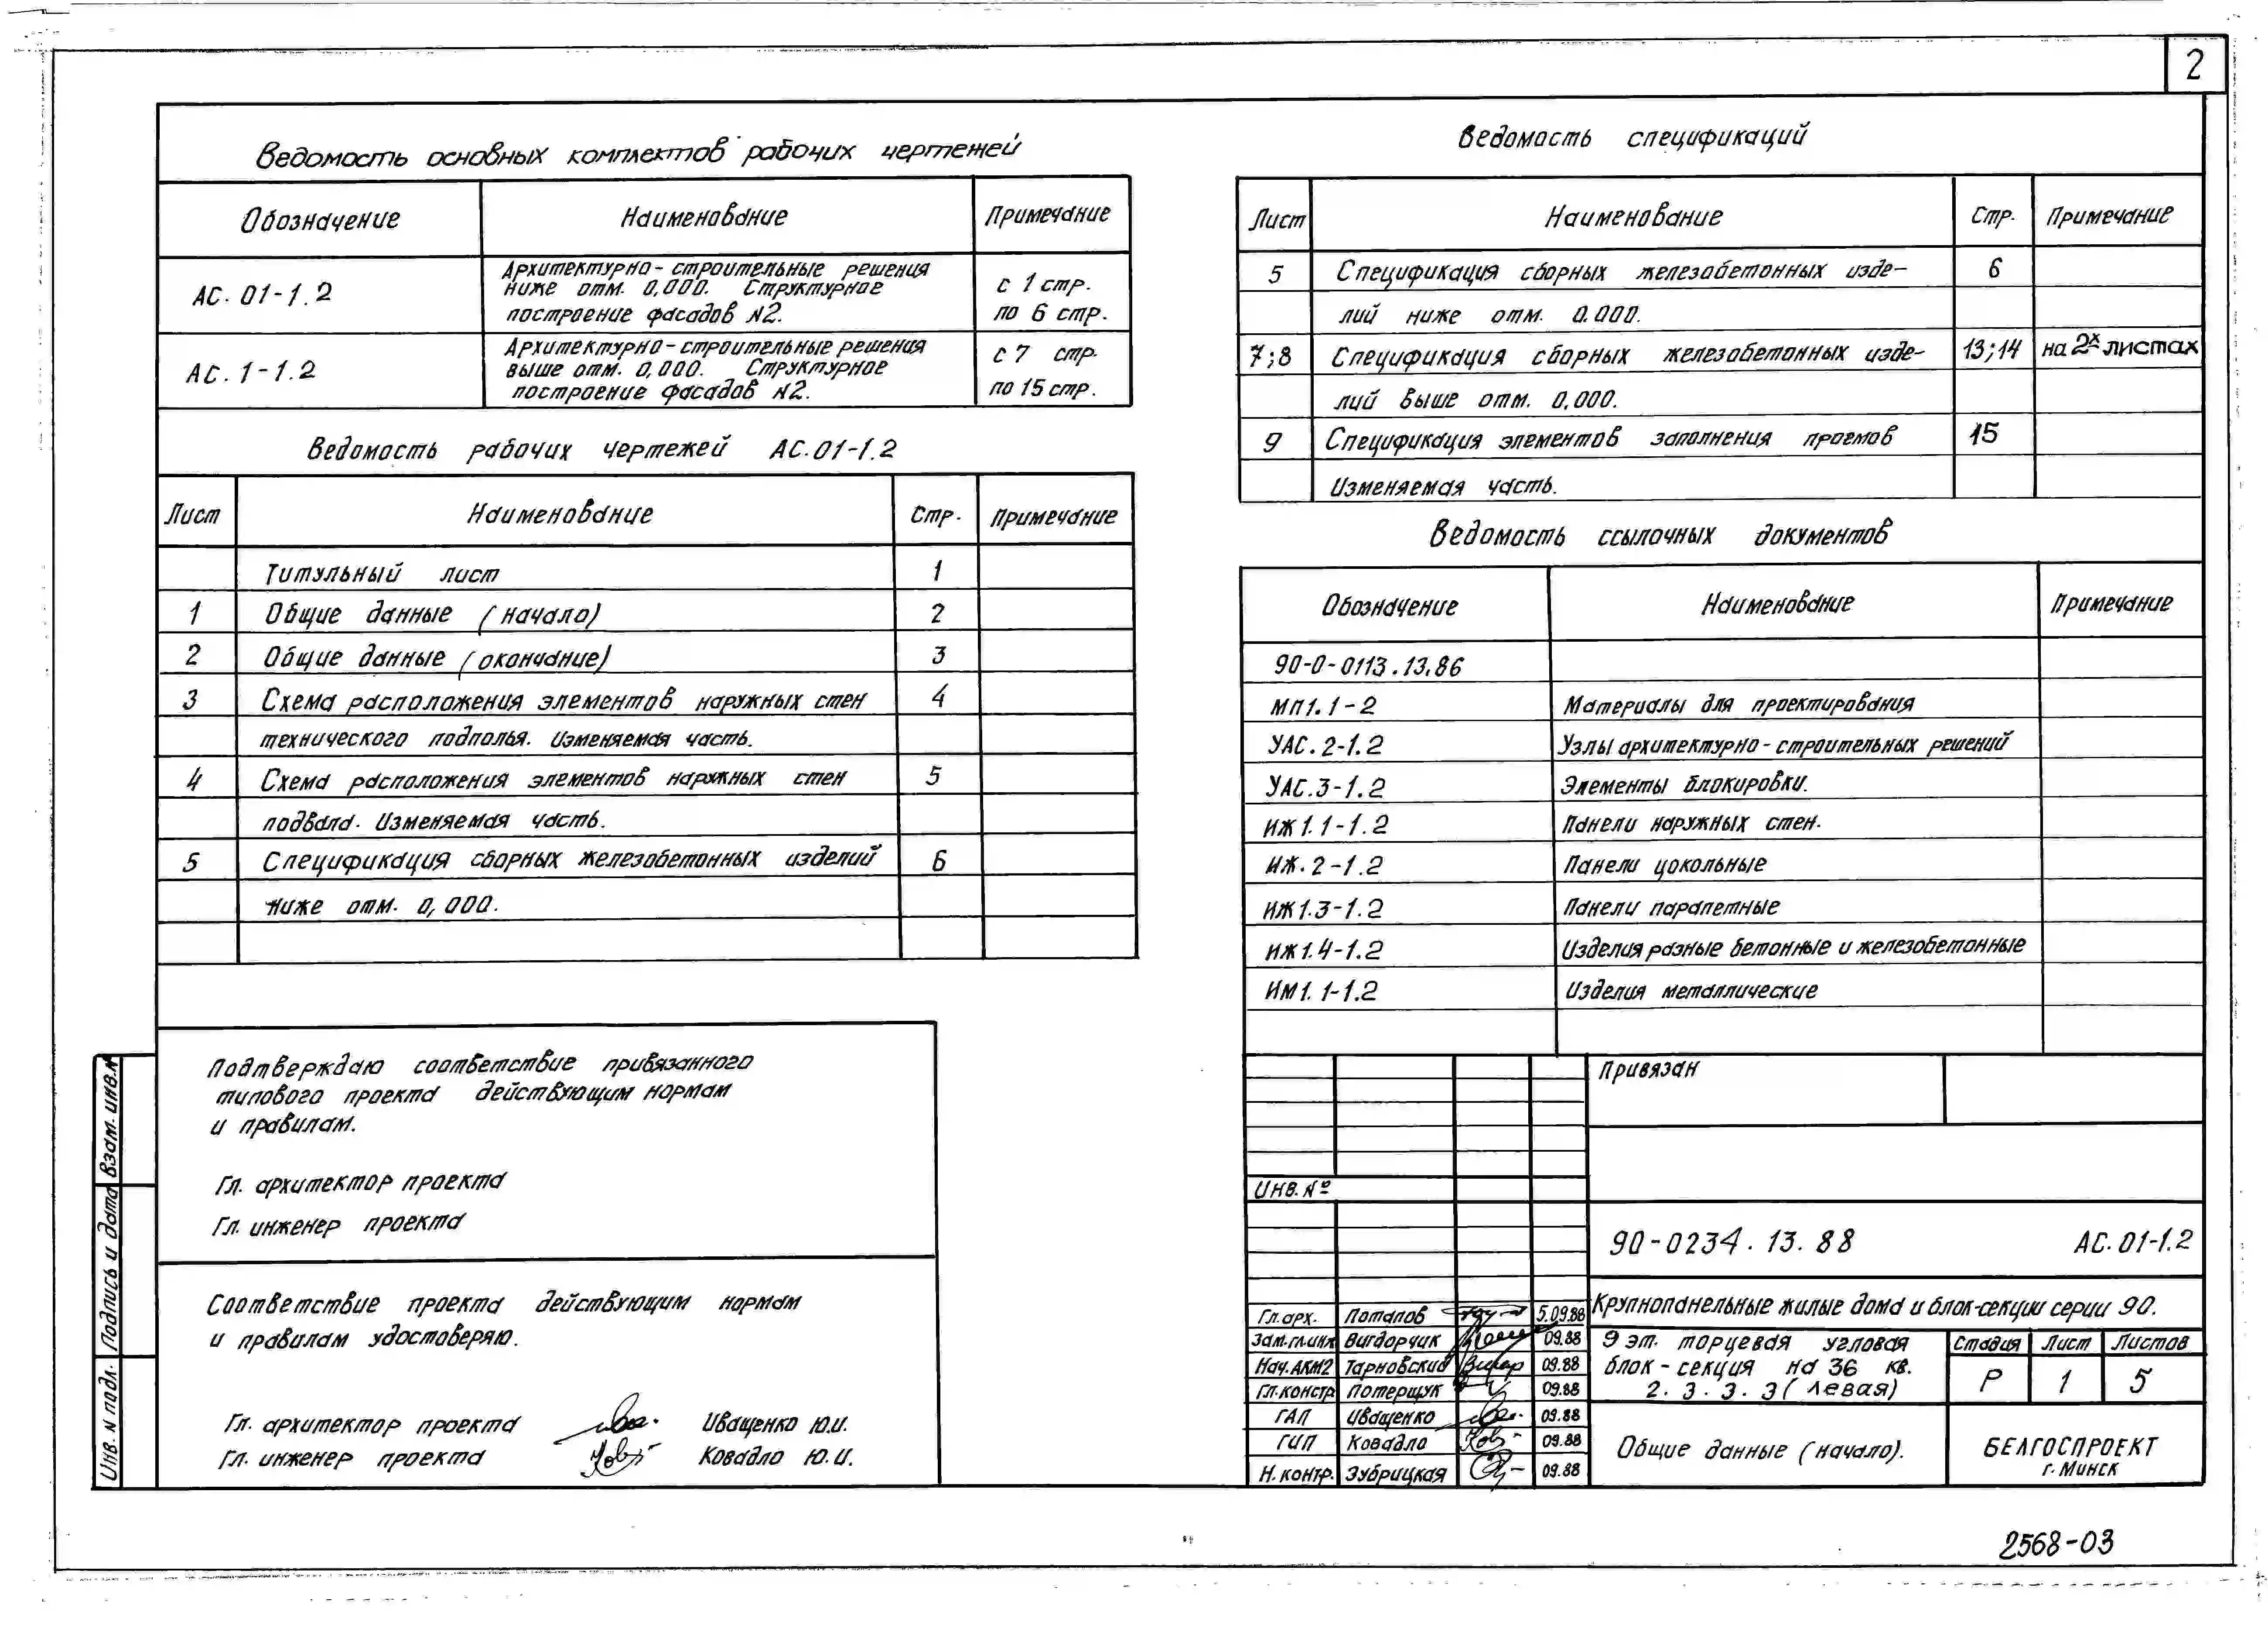 2
Ведомость основных комплектов рабочих чертежей
Обозначение Наименование Примечание
АС. 01-1.2 Архитектурно-строительные решения ниже отм. 0,000. Структурное построение фасадов №2. с 1 стр. по 6 стр.
АС. 1-1.2 Архитектурно-строительные решения выше отм. 0,000. Структурное построение фасадов №2. с 7 стр. по 15 стр.
Ведомость рабочих чертежей АС.01-1.2
Лист Наименование Стр. Примечание
Титульный лист 1
1 Общие данные (начало) 2
2 Общие данные (окончание) 3
3 Схема расположения элементов наружных стен 4
технического подполья. Изменяемая часть.
4 Схема расположения элементов наружных стен 5
подвала. Изменяемая часть.
5 Спецификация сборных железобетонных изделий 6
ниже отм. 0,000.
Подтверждаю соответствие привязанного
типового проекта действующим нормам
и правилам.
Гл. архитектор проекта
Гл. инженер проекта
Соответствие проекта действующим нормам
и правилам удостоверяю.
Гл. архитектор проекта Иващенко Ю.И.
Гл. инженер проекта Ковадло Ю.И.
Взам. инв.№
Подпись и дата
Инв. № подл.
Ведомость спецификаций
Лист Наименование Стр. Примечание
5 Спецификация сборных железобетонных изде- 6
лий ниже отм. 0.000.
7;8 Спецификация сборных железобетонных изде- 13;14 на 2х листах
лий выше отм. 0,000.
9 Спецификация элементов заполнения проемов 15
Изменяемая часть.
Ведомость ссылочных документов
Обозначение Наименование Примечание
90-0-0113.13.86
МП1.1-2 Материалы для проектирования
УАС.2-1.2 Узлы архитектурно-строительных решений
УАС.3-1.2 Элементы блокировки.
ИЖ1.1-1.2 Панели наружных стен.
ИЖ.2-1.2 Панели цокольные
ИЖ1.3-1.2 Панели парапетные
ИЖ1.4-1.2 Изделия разные бетонные и железобетонные
ИМ1.1-1.2 Изделия металлические
Привязан
Инв.№
90-0234.13.88 АС.01-1.2
Крупнопанельные жилые дома и блок-секции серии 90.
Гл.арх. Потапов 5.09.88
Зам.гл.инж Вигдорчик 09.88
Нач.АКМ2 Тарновский 09.88
Гл.констр Потерщук 09.88
ГАП Иващенко 09.88
ГИП Ковадло 09.88
Н.контр. Зубрицкая 09.88
9 эт. торцевая угловая
блок-секция на 36 кв.
2.3.3.3 (левая)
Стадия Лист Листов
Р 1 5
Общие данные (начало).
БЕЛГОСПРОЕКТ
г. Минск
2568-03